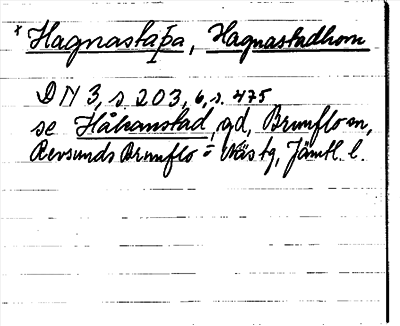 * Hagnastaþa, Hagnastadhom
DN 3, s. 203, 6, s. 475
se Håkanstad, gd, Brunflo sn,
Revsunds Brunflo = Näs tg, Jämtl. l.